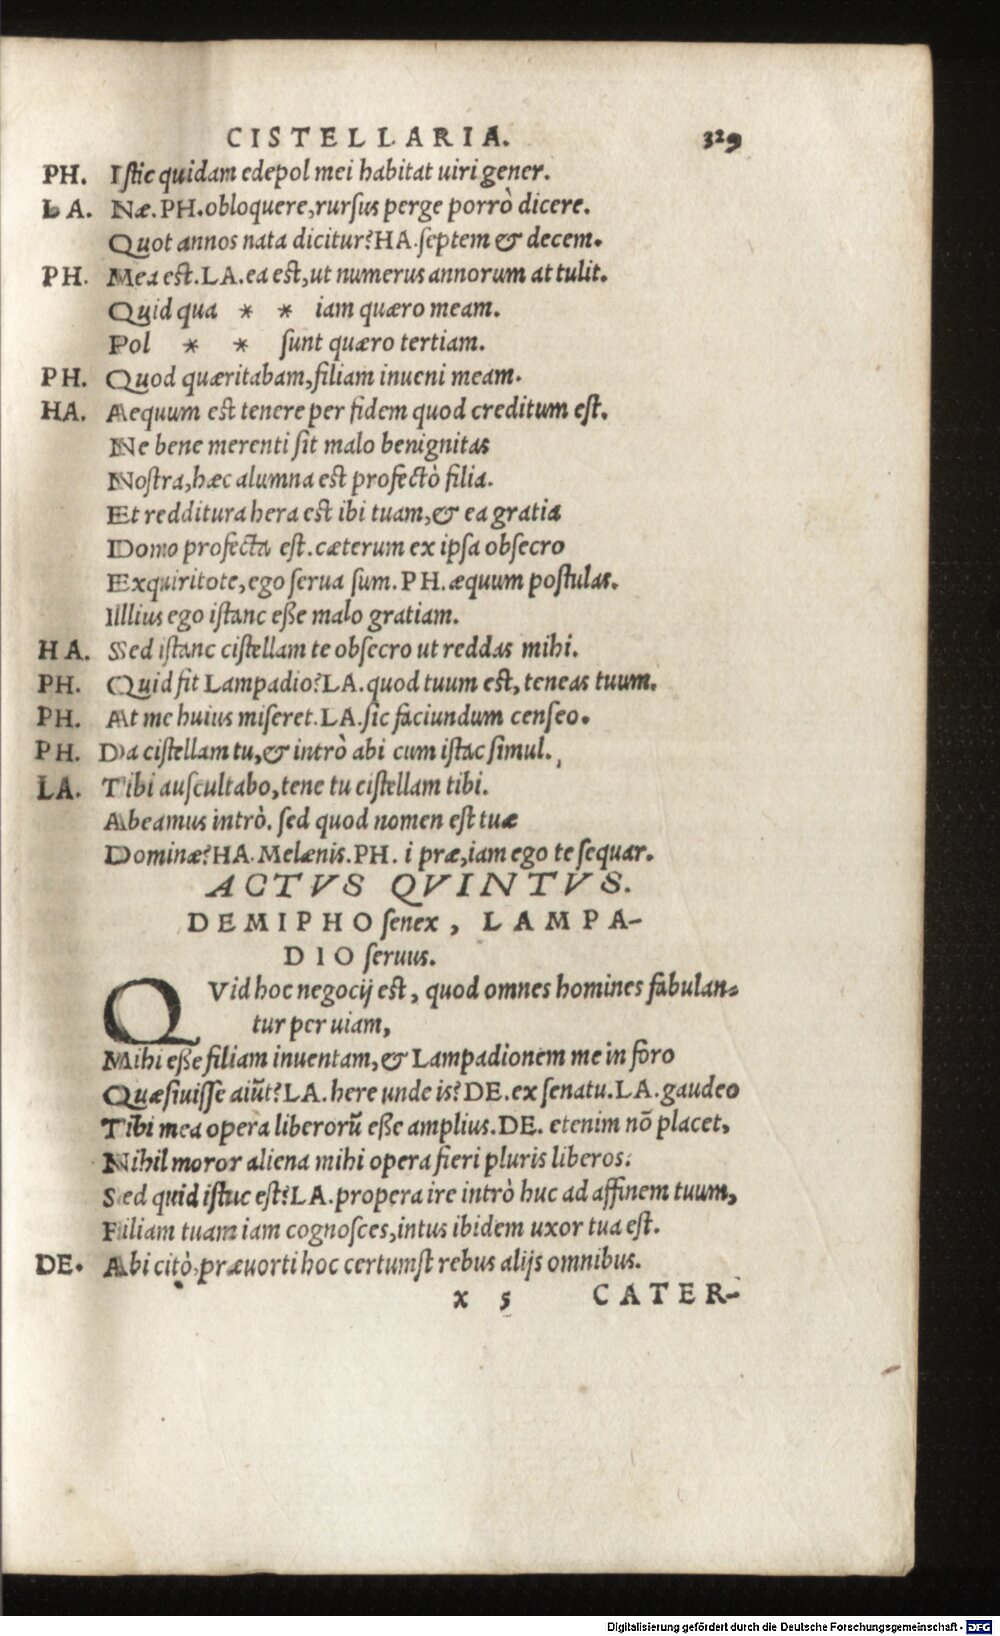 CISTELLARIA. 329
PH. Istic quidam edepol mei habitat uiri gener.
LA. Næ. PH. obloquere, rursus perge porrò dicere.
Quot annos nata dicitur? HA. septem & decem.
PH. Mea est. LA. ea est, ut numerus annorum attulit.
Quid qua * * iam quæro meam.
Pol * * sunt quæro tertiam.
PH. Quod quæritabam, filiam inueni meam.
HA. Aequum est tenere per fidem quod creditum est.
Ne bene merenti sit malo benignitas
Nostra, hæc alumna est profectò filia.
Et redditura hera est ibi tuam, & ea gratia
Domo profecta est. cæterum ex ipsa obsecro
Exquiritote, ego serua sum. PH. æquum postulas.
Illius ego istanc esse malo gratiam.
HA. Sed istanc cistellam te obsecro ut reddas mihi.
PH. Quid fit Lampadio? LA. quod tuum est, teneas tuum.
PH. At me huius miseret. LA. sic faciundum censeo.
PH. Da cistellam tu, & intrò abi cum istac simul.
LA. Tibi auscultabo, tene tu cistellam tibi.
Abeamus intrò. sed quod nomen est tuæ
Dominæ? HA. Melænis. PH. i præ, iam ego te sequar.
ACTVS QVINTVS.
DEMIPHO senex, LAMPA-
DIO seruus.
QVid hoc negocij est, quod omnes homines fabulan-
tur per uiam,
Mihi esse filiam inuentam, & Lampadionem me in foro
Quæsiuisse aiũt? LA. here unde is? DE. ex senatu. LA. gaudeo
Tibi mea opera liberorũ esse amplius. DE. etenim nõ placet,
Nihil moror aliena mihi opera fieri pluris liberos.
Sed quid istuc est? LA. propera ire intrò huc ad affinem tuum,
Filiam tuam iam cognosces, intus ibidem uxor tua est.
DE. Abi citò, præuorti hoc certumst rebus alijs omnibus.
x 5 CATER-
Digitalisierung gefördert durch die Deutsche Forschungsgemeinschaft - DFG